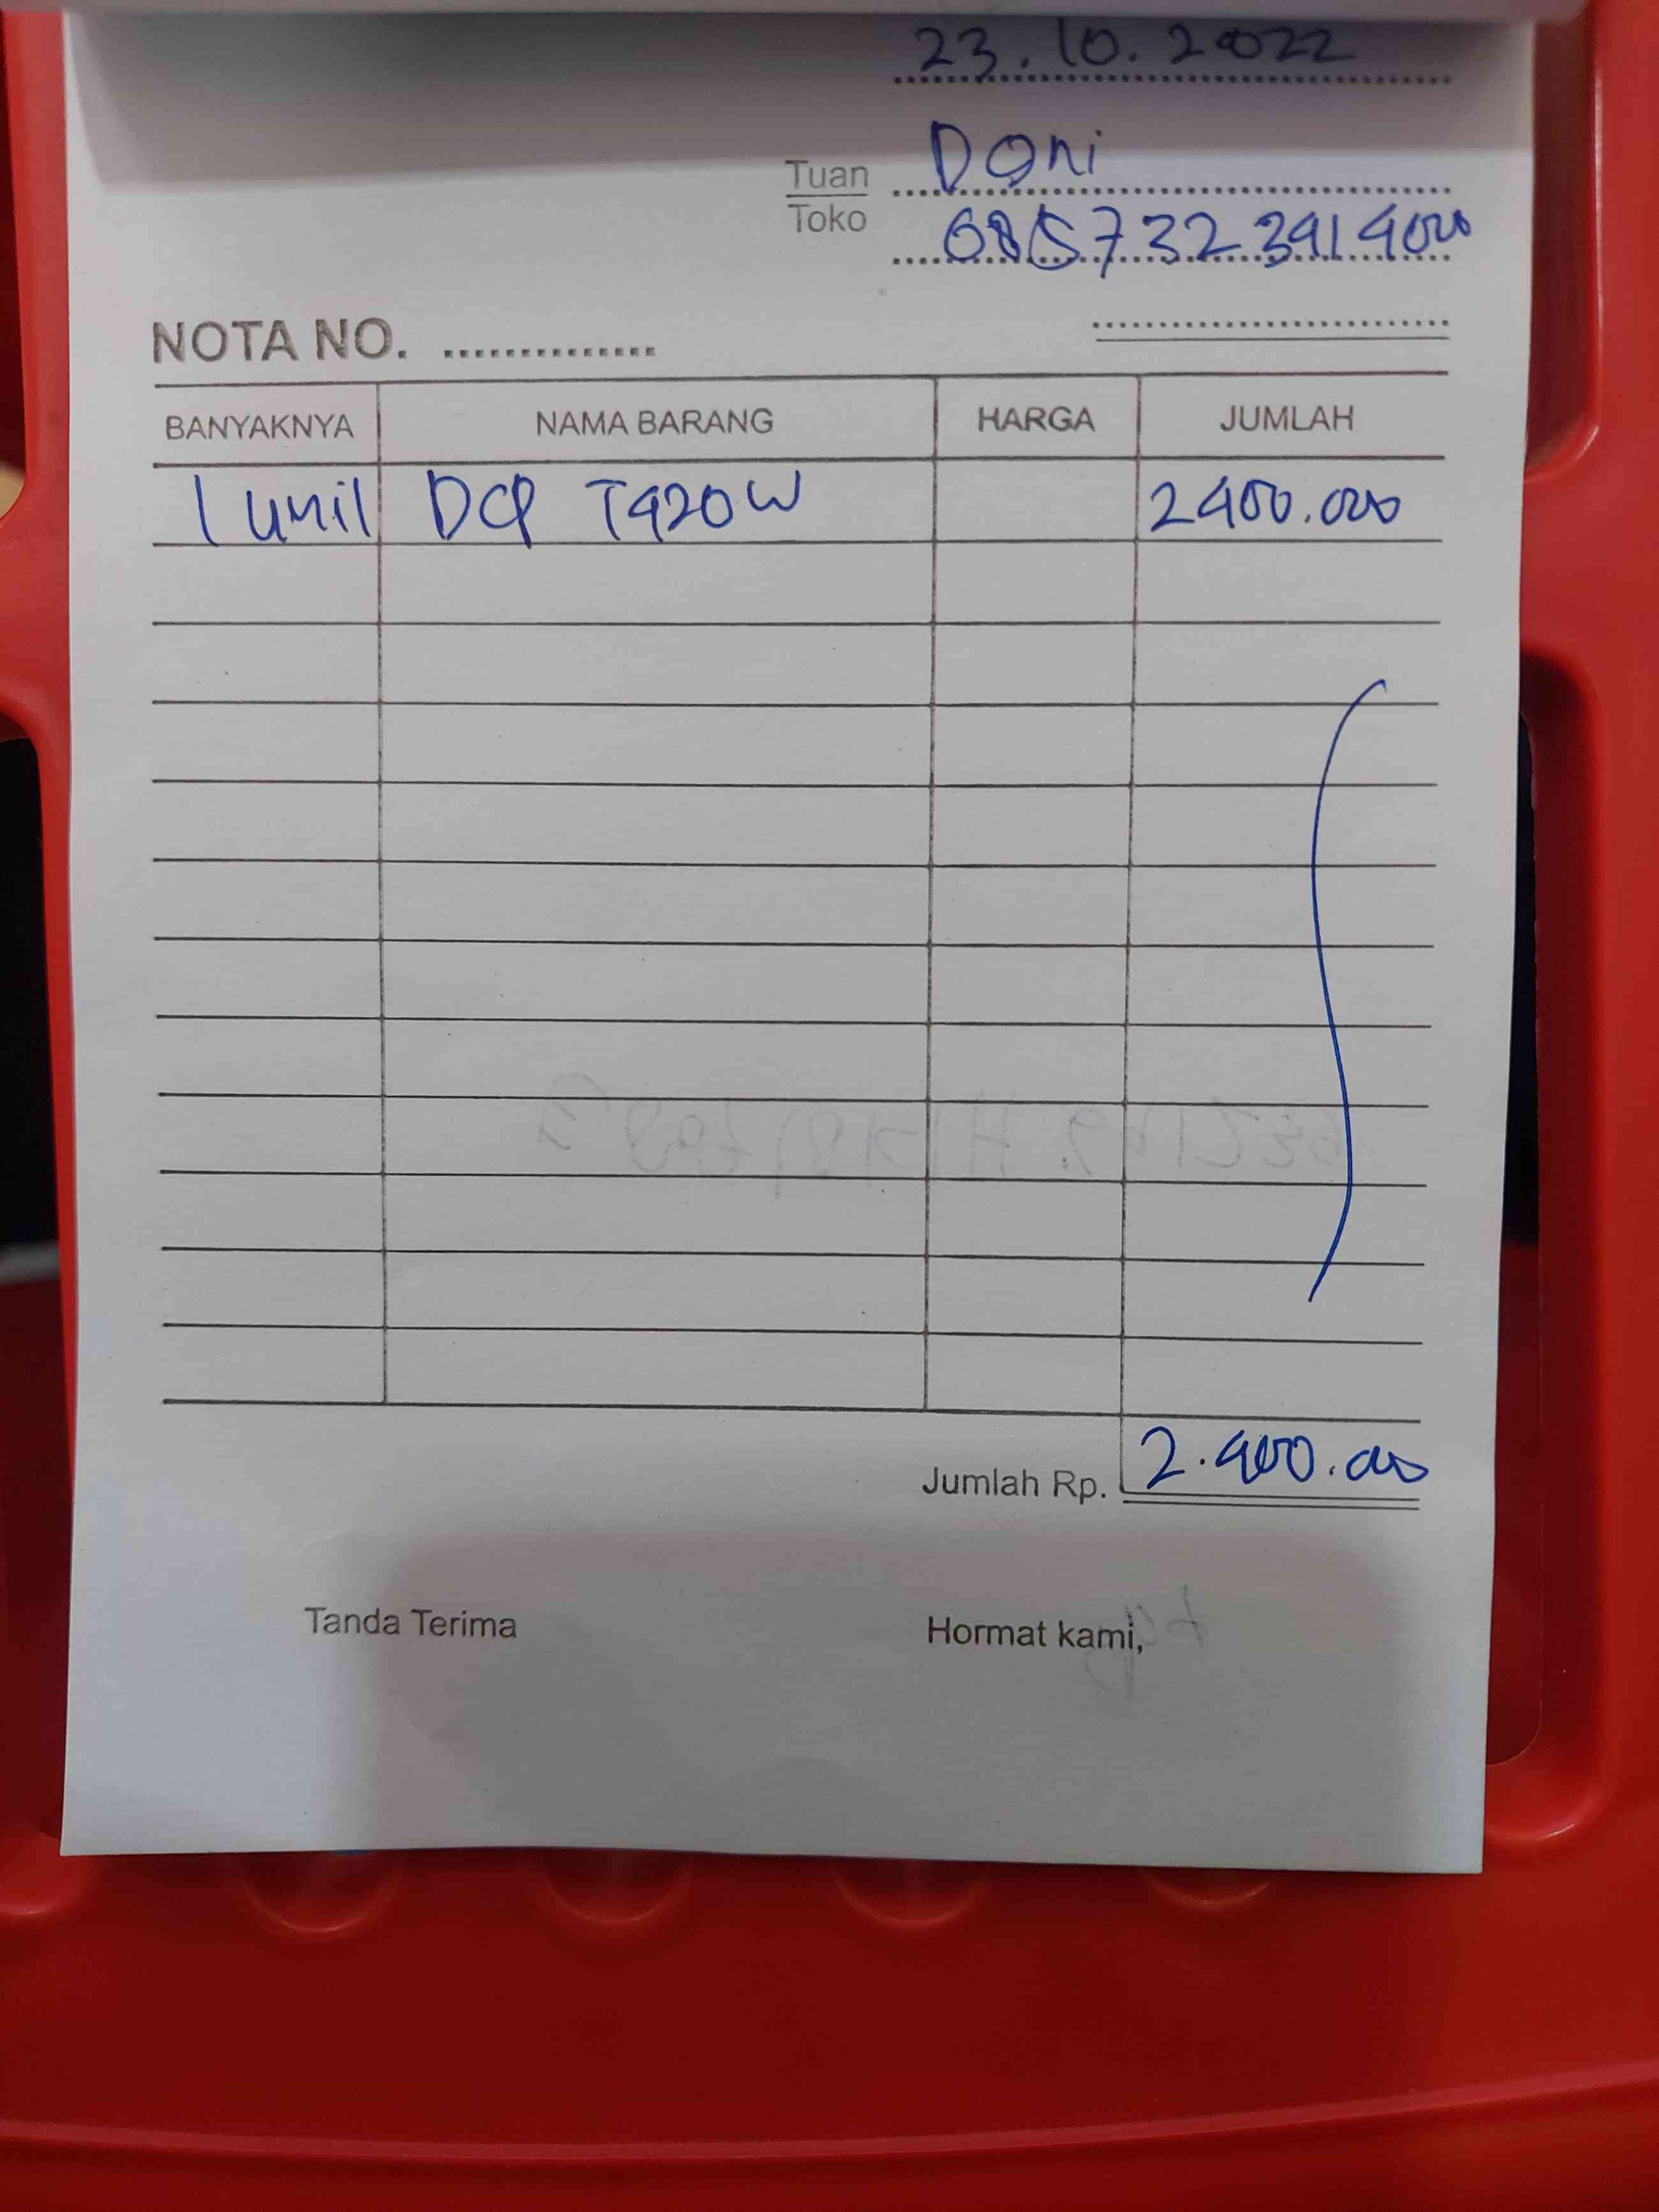 23.10.2022
Tuan Doni
Toko
NOTA NO. ..............
BANYAKNYA NAMA BARANG HARGA JUMLAH
1 unit DCP T420W 2400.000
Jumlah Rp. 2.400.000
Tanda Terima Hormat kami,